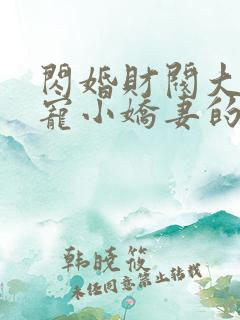 閃婚財閥大
寵小嬌妻的
韩晓筱
未经同意禁止转载